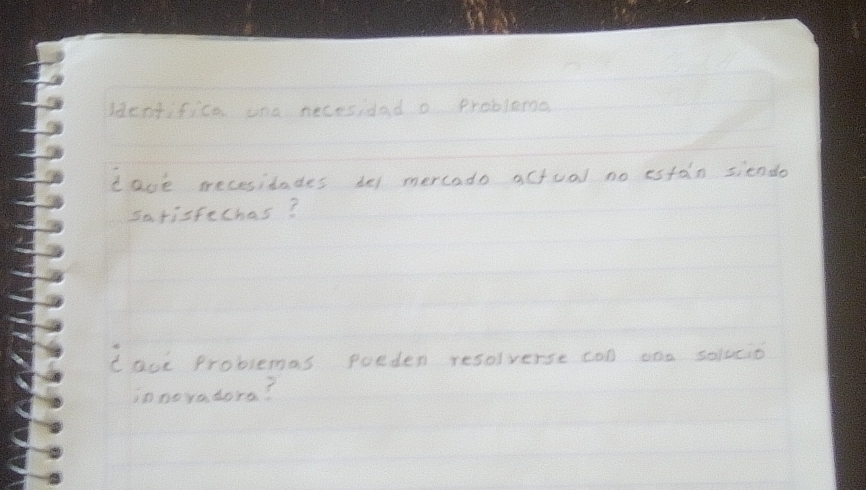 Identifica una necesidad o Problema
¿Qué necesidades del mercado actual no están siendo
satisfechas?
¿Qué Problemas Pueden resolverse con una solució
innovadora?